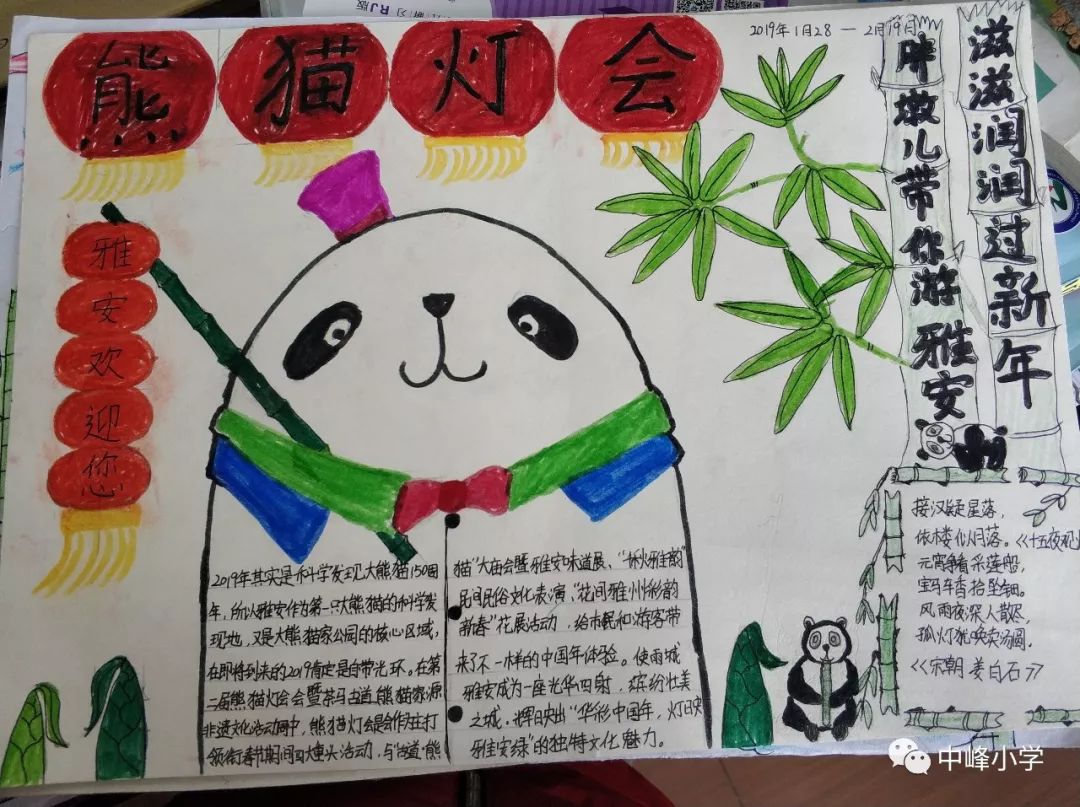 熊猫灯会
2019年1月28 — 2月19日
滋滋润润过新年
胖墩儿带你游雅安
雅安欢迎您
2019年其实是科学发现大熊猫150周
年，所以雅安作为第一只大熊猫的科学发
现地，又是大熊猫家公园的核心区域，
在即将到来的2019肯定是自带光环。在第
二届熊猫灯会会暨茶马古道熊猫家源
非遗文化活动周中，熊猫灯会是会作为主打
领衔春节期间四大埠头活动，与"古道·熊
猫"大庙会暨雅安味道展、
民间民俗文化表演、"花间雅州·彩韵
新春"花展活动，给市民和游客带
来了不一样的中国年体验。使雨城
雅安成为一座光华四射，缤纷壮美
之城。辉映出"华彩中国年，灯映
雅安绿"的独特文化魅力。
接汉疑星落，
依楼似月落。《十五夜观
元宵争看采莲船，
宝马车香拾坠钿。
风雨夜深人散尽，
孤灯犹唤卖汤圆。
《宋朝 姜白石》
中峰小学